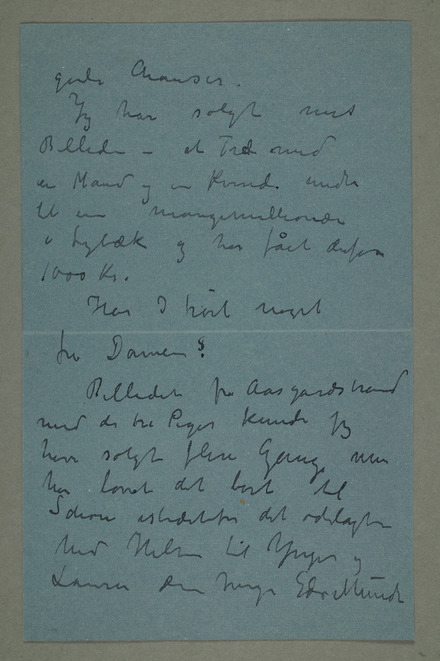 gode Chanser.
Jeg har solgt mit
Billede – et Træ med
en Mand og en Kvinde under
til en mangemillionær
i Lybæk og har fået derfor
1000 Kr.
Har I hört noget
fra Damen?
Billedet fra Aasgaardstrand
med de tre Piger kunde jeg
have solgt flere Gang men
har lovet det bort til
det
Med Hilsen til og
Laura Din Edv Munch